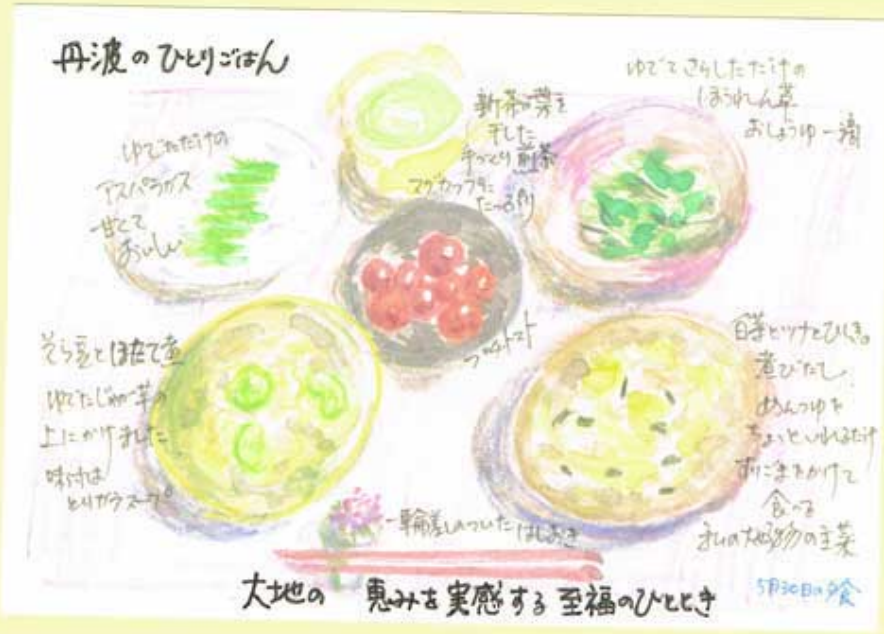 丹波のひとりごはん
ゆでてさらしただけの
ほうれん草
おしょうゆ一滴
新茶の葉を
干した
手づくり煎茶
マグカップに
たっぷり
ゆでただけの
アスパラガス
甘くて
おいしい
プチトマト
そら豆とほたて煮
ゆでたじゃが芋の
上にかけました
味付は
とりガラスープ
白菜とツナとひじきの
煮びたし
めんつゆを
ちょっといれるだけ
すりごまをかけて
食べる
私の大好物の主菜
一輪差しのついたはしおき
大地の 恵みを実感する至福のひととき
5月30日の夕食